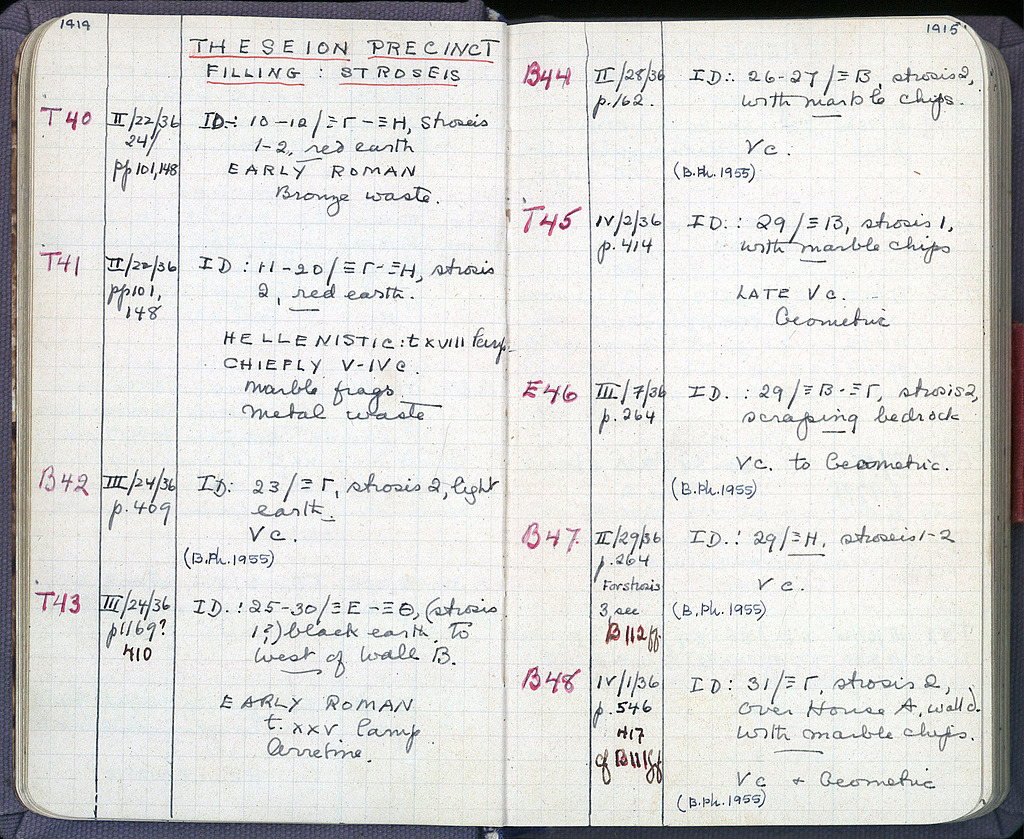 1414
THESEION PRECINCT
FILLING : STROSEIS
T40
II/22/36
24/
pp 101, 148
ID.: 10-12/≡Γ-≡H, stroseis
1-2, red earth
EARLY ROMAN
Bronze waste.
T41
II/22/36
pp 101,
148
ID: 11-20/≡Γ-≡H, strosis
2, red earth.
HELLENISTIC: t XVIII lamp.
CHIEFLY V-IV c.
marble frags
metal waste
B42
III/24/36
p. 409
ID: 23/≡Γ, strosis 2, light
earth.
V c.
(B.Ph. 1955)
T43
III/24/36
p 1169?
410
ID.: 25-30/≡E-≡Θ, (strosis
1?) black earth, to
west of wall B.
EARLY ROMAN
t. XXV. lamp
Arretine.
1415
B44
II/28/36
p. 162.
ID: 26-27/≡B, strosis 2,
with marble chips.
V c.
(B.Ph. 1955)
T45
IV/2/36
p. 414
ID.: 29/≡B, strosis 1,
with marble chips
LATE V c.
Geometric
E46
III/7/36
p. 264
ID. : 29/≡B-≡Γ, strosis 2,
scraping bedrock
V c. to Geometric.
(B.Ph. 1955)
B47
II/29/36
p. 264
For strosis
3 see
B112ff
ID.: 29/≡H, stroseis 1-2
V c.
(B.Ph. 1955)
B48
IV/1/36
p. 546
417
cf B111ff
ID: 31/≡Γ, strosis 2,
over House A, wall d.
with marble chips.
V c + Geometric
(B.Ph. 1955)